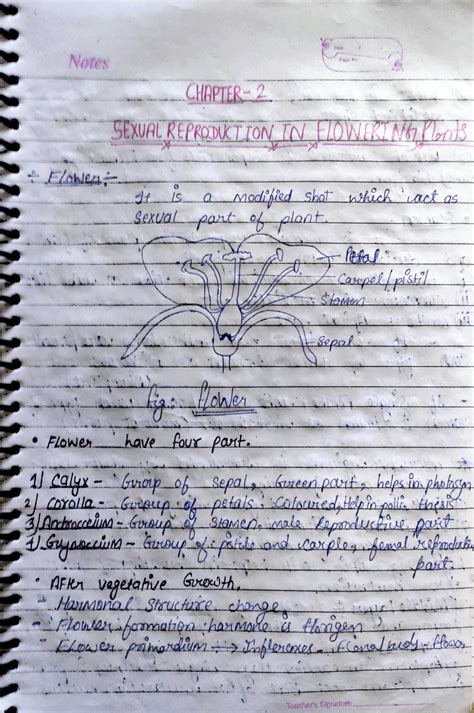 Notes
CHAPTER-2
SEXUAL REPRODUCTION IN FLOWERING Plants
÷ Flower:-
It is a modified shot which act as
sexual part of plant.
Petal
Carepel/pistil
Stamen
Sepal
fig: flower
• Flower have four part.
1) Calyx - Group of sepal, Green part, helps in photosyn
2) Corolla - Group of petals, Coloured, Help in pollin thesis
3) - Group of stamen, male Reproductive part
- Group of pistile and carple, femal reproductive
part.
• After vegetative Growth,
- Harmonal structure change,
- Flower formation harmone is florigen
- Flower primordium → - flower
Teacher's Signature